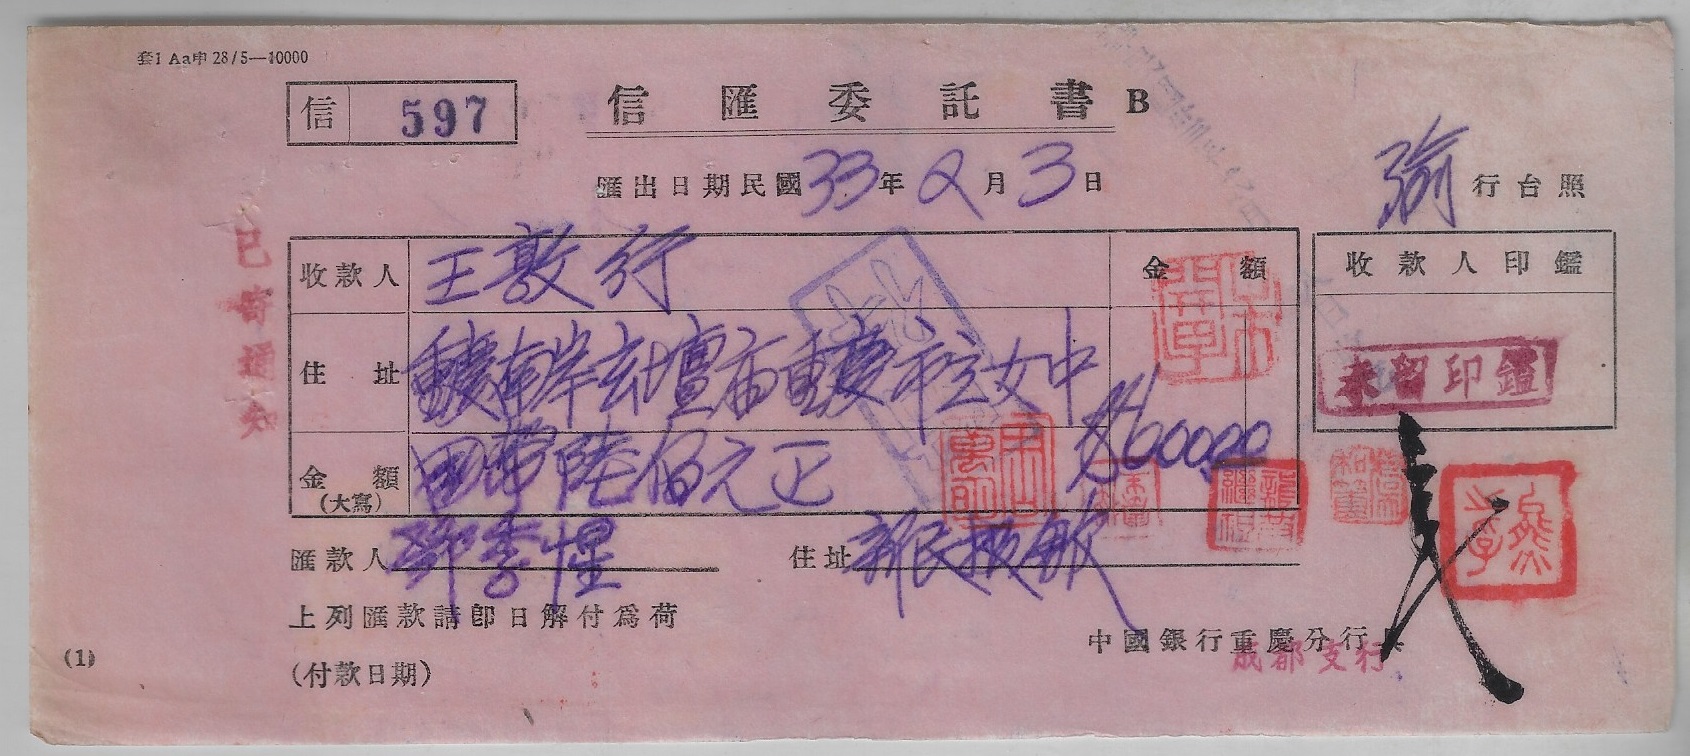 套1 Aa中 28/5—10000
信 597
信匯委託書 B
匯出日期民國33年2月3日
渝行台照
收款人 王敦行 金額
收款人印鑑
住址 重慶南岸玄壇廟重慶市立女中
未留印鑑
600.00
金額(大寫) 國幣陸佰元正
匯款人 鄧季惺 住址 新民報
上列匯款請卽日解付爲荷
中國銀行重慶分行
成都支行
(付款日期)
(1)
已寄通知